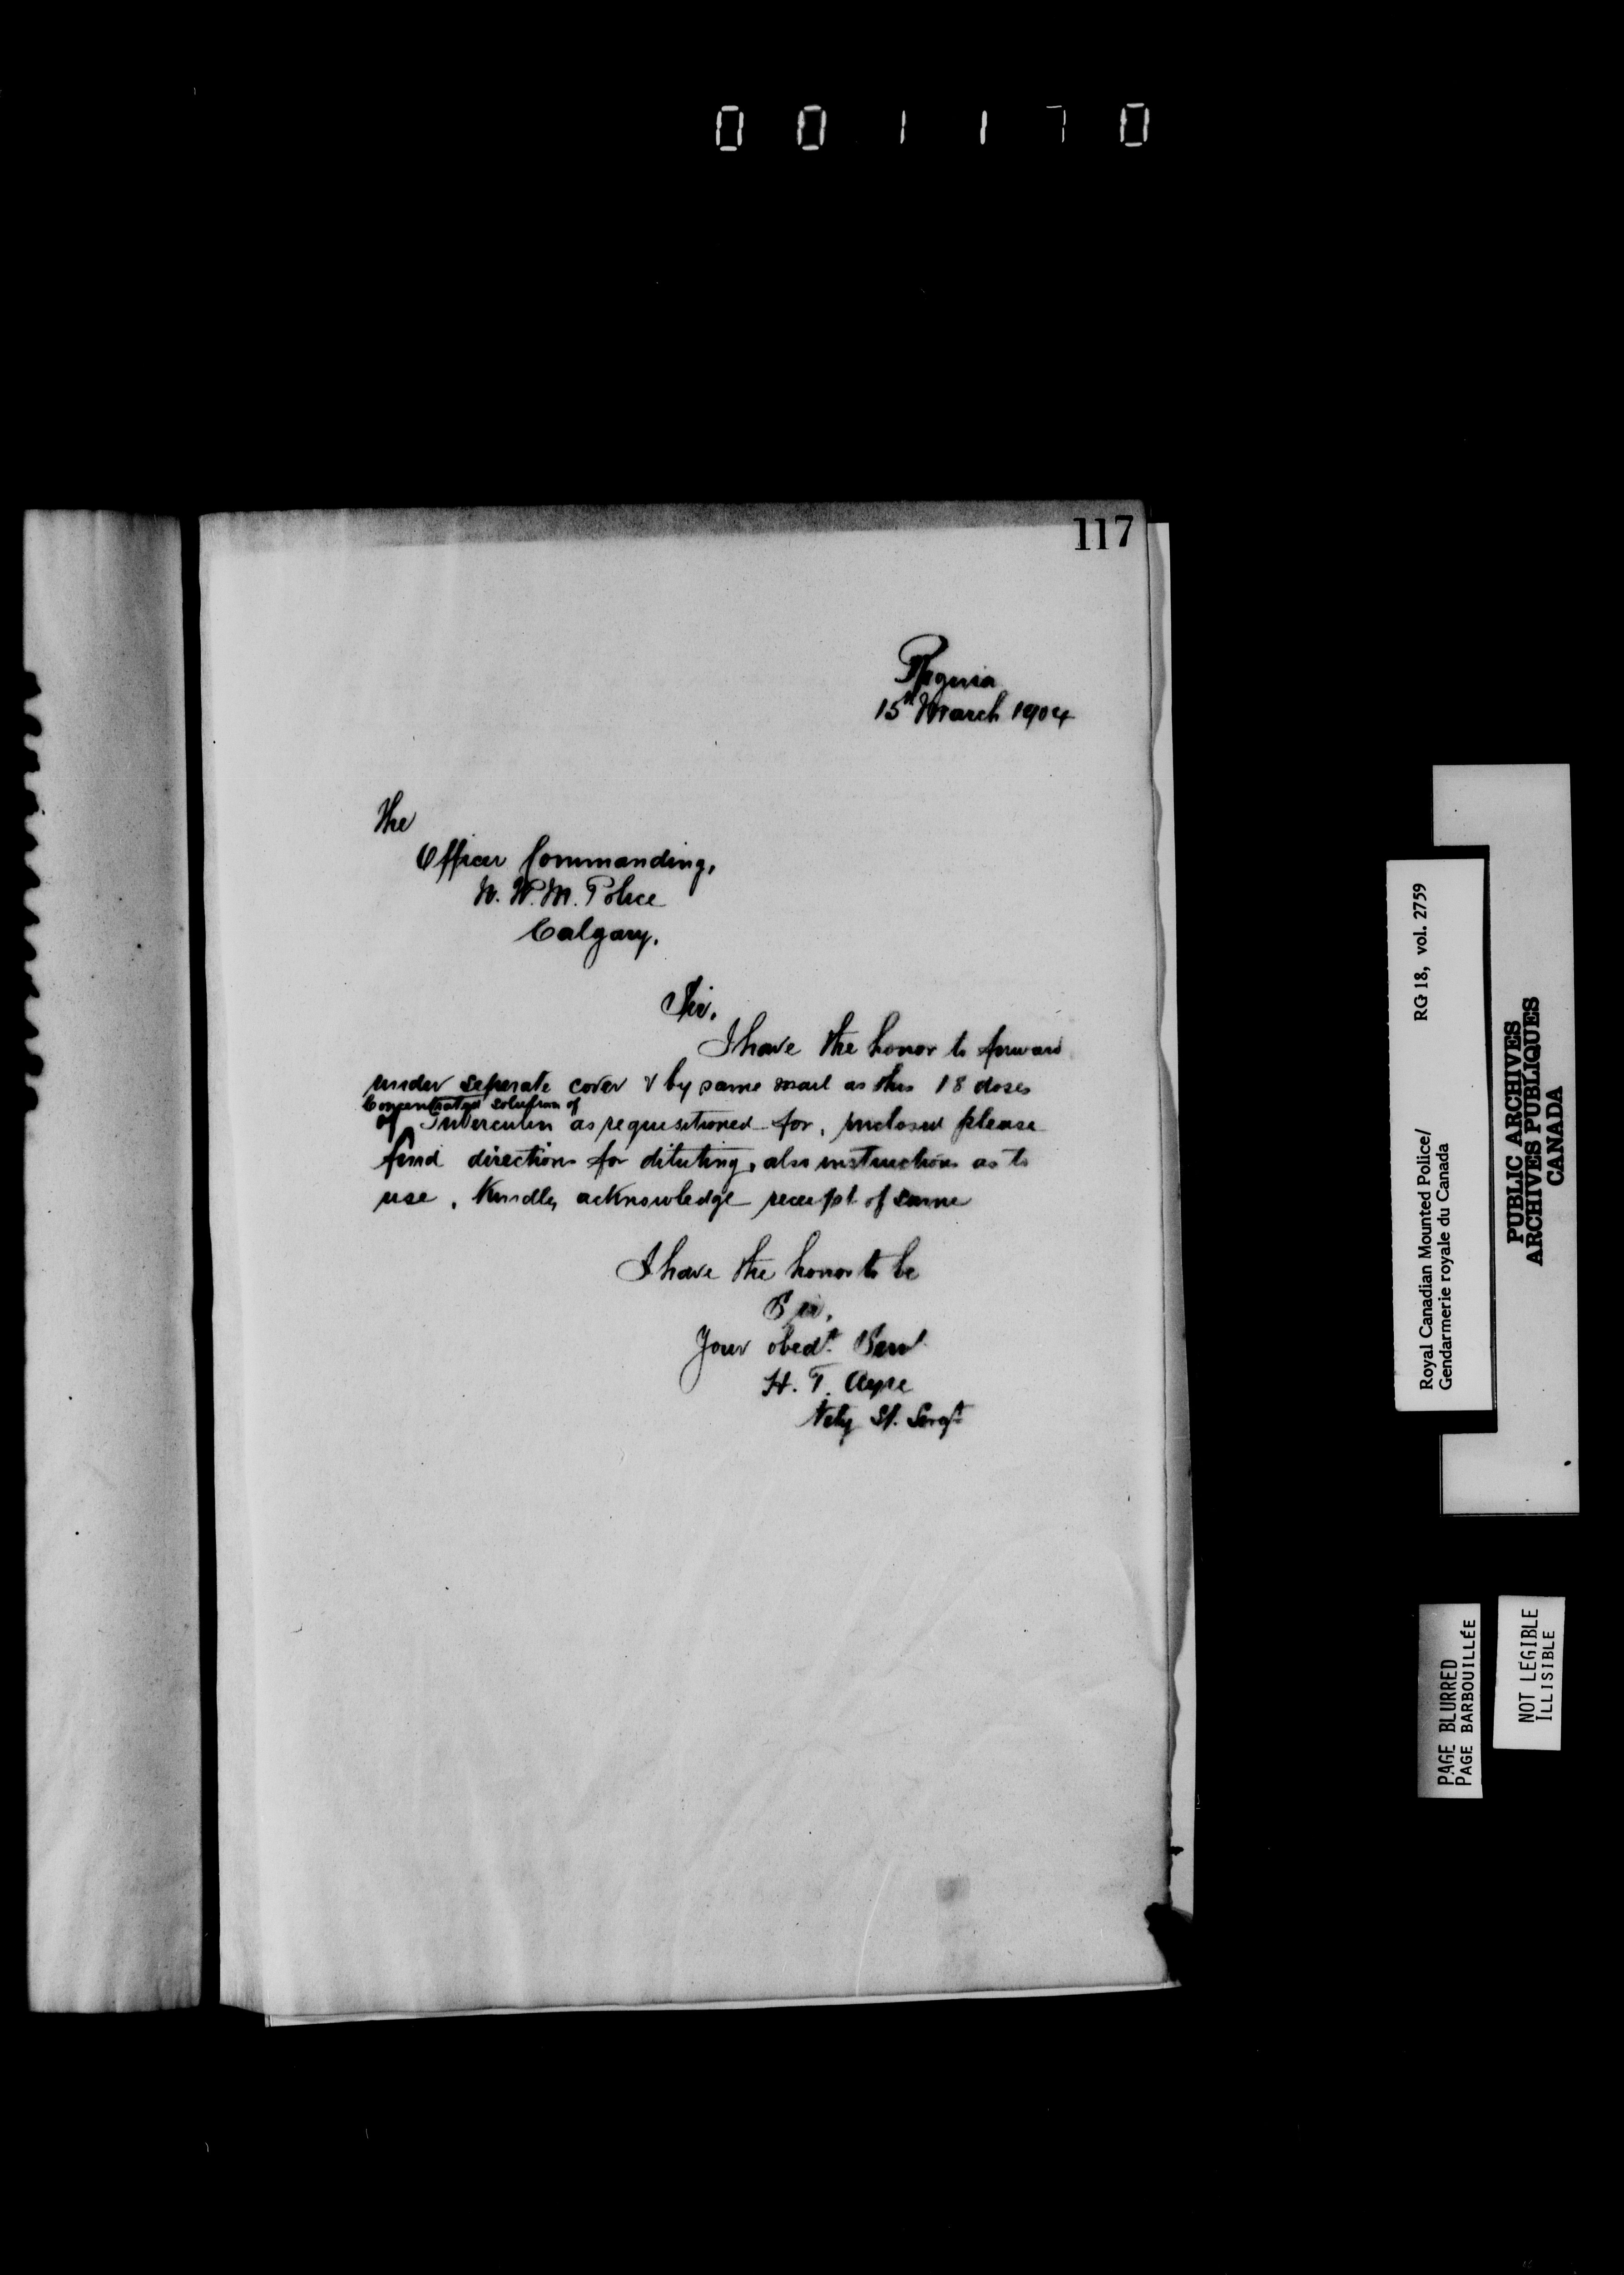 001170
117
Regina
15th March 1904
The
Officer Commanding,
N. W. M. Police
Calgary.
Sir,
I have the honor to forward
under seperate cover & by same mail as this 18 doses
Concentrated solution of
of Tuberculin as requisitioned for, inclosed please
find directions for diluting, also instructions as to
use. Kindly acknowledge receipt of same
I have the honor to be
Sir,
Your obedt. Servt.
H. T. Ayre
Vety St. Sergt
Royal Canadian Mounted Police/ RG 18, vol. 2759
Gendarmerie royale du Canada
PUBLIC ARCHIVES
ARCHIVES PUBLIQUES
CANADA
PAGE BLURRED
PAGE BARBOUILLÉE
NOT LEGIBLE
ILLISIBLE